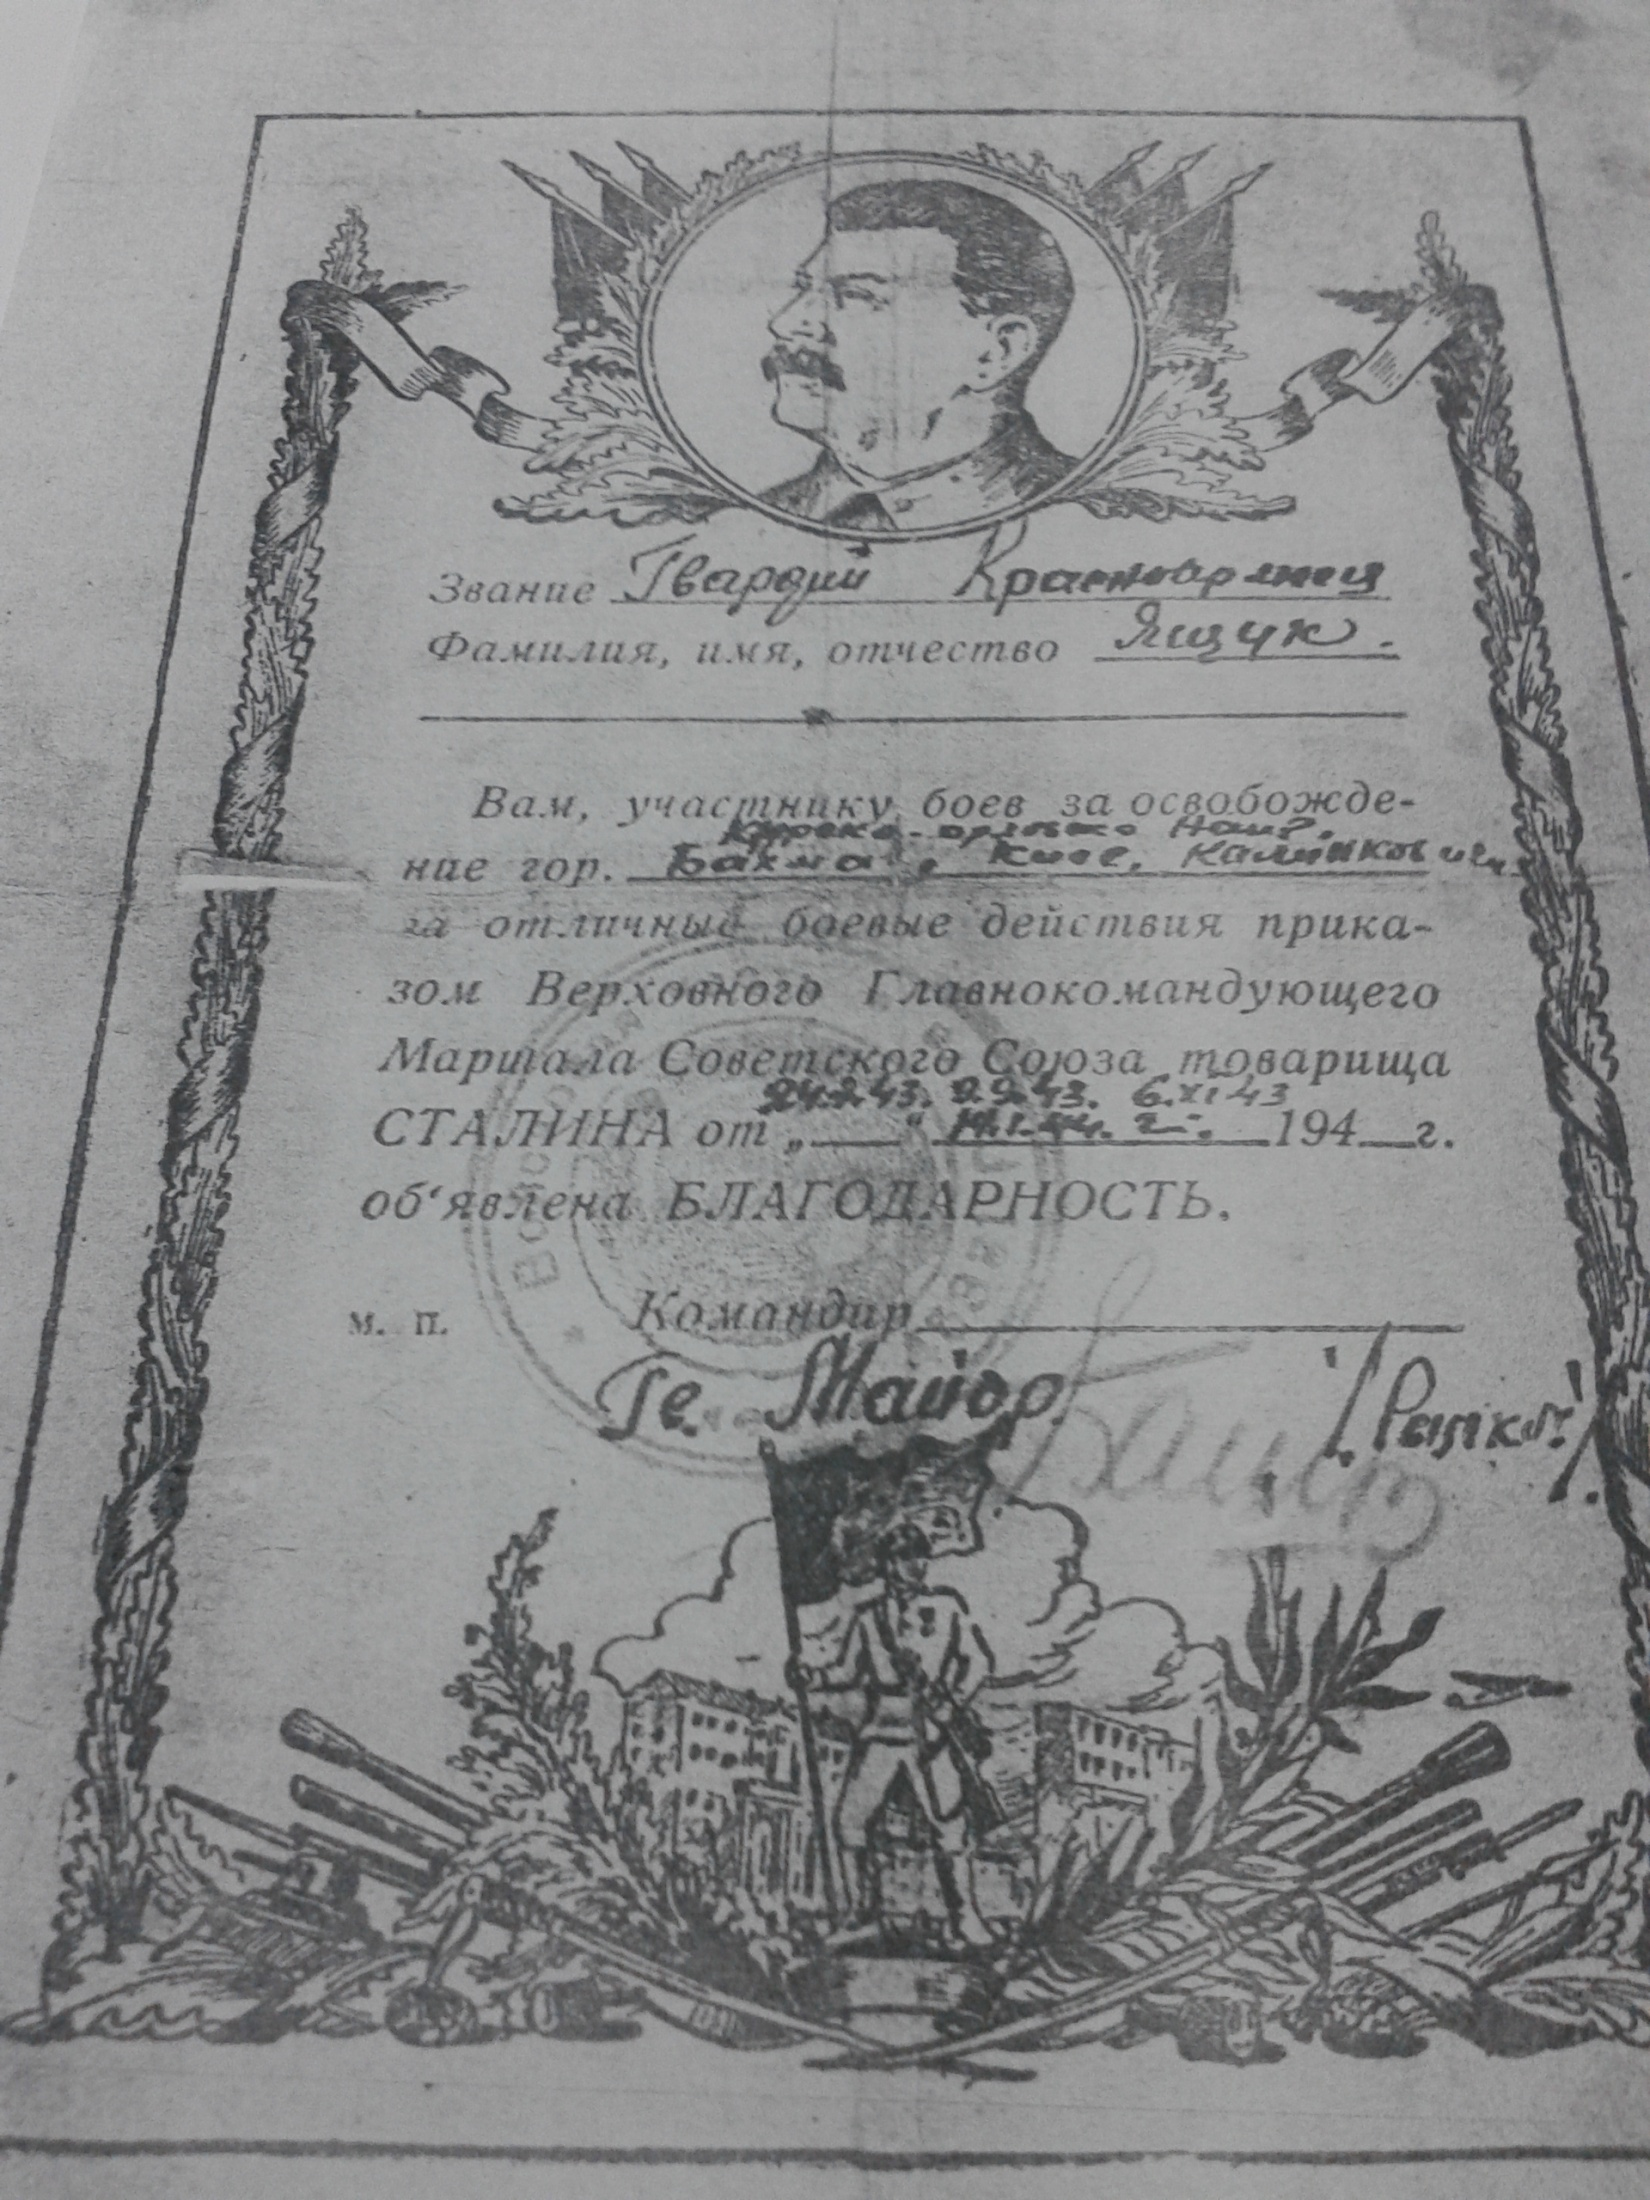 Звание Гвардии Красноармеец
Фамилия, имя, отчество Ящук.
Вам, участнику боев за освобожде-
Курско-орловско нап.
ние гор. Бахмач, Киев, Калинковичи
за отличные боевые действия прика-
зом Верховного Главнокомандующего
Маршала Советского Союза товарища
24.7.43. 9.9.43. 6.XI.43
СТАЛИНА от „ “ 14.I.44. г. 194 г.
об‘явлена БЛАГОДАРНОСТЬ.
м. п. Командир
Гв. Майор